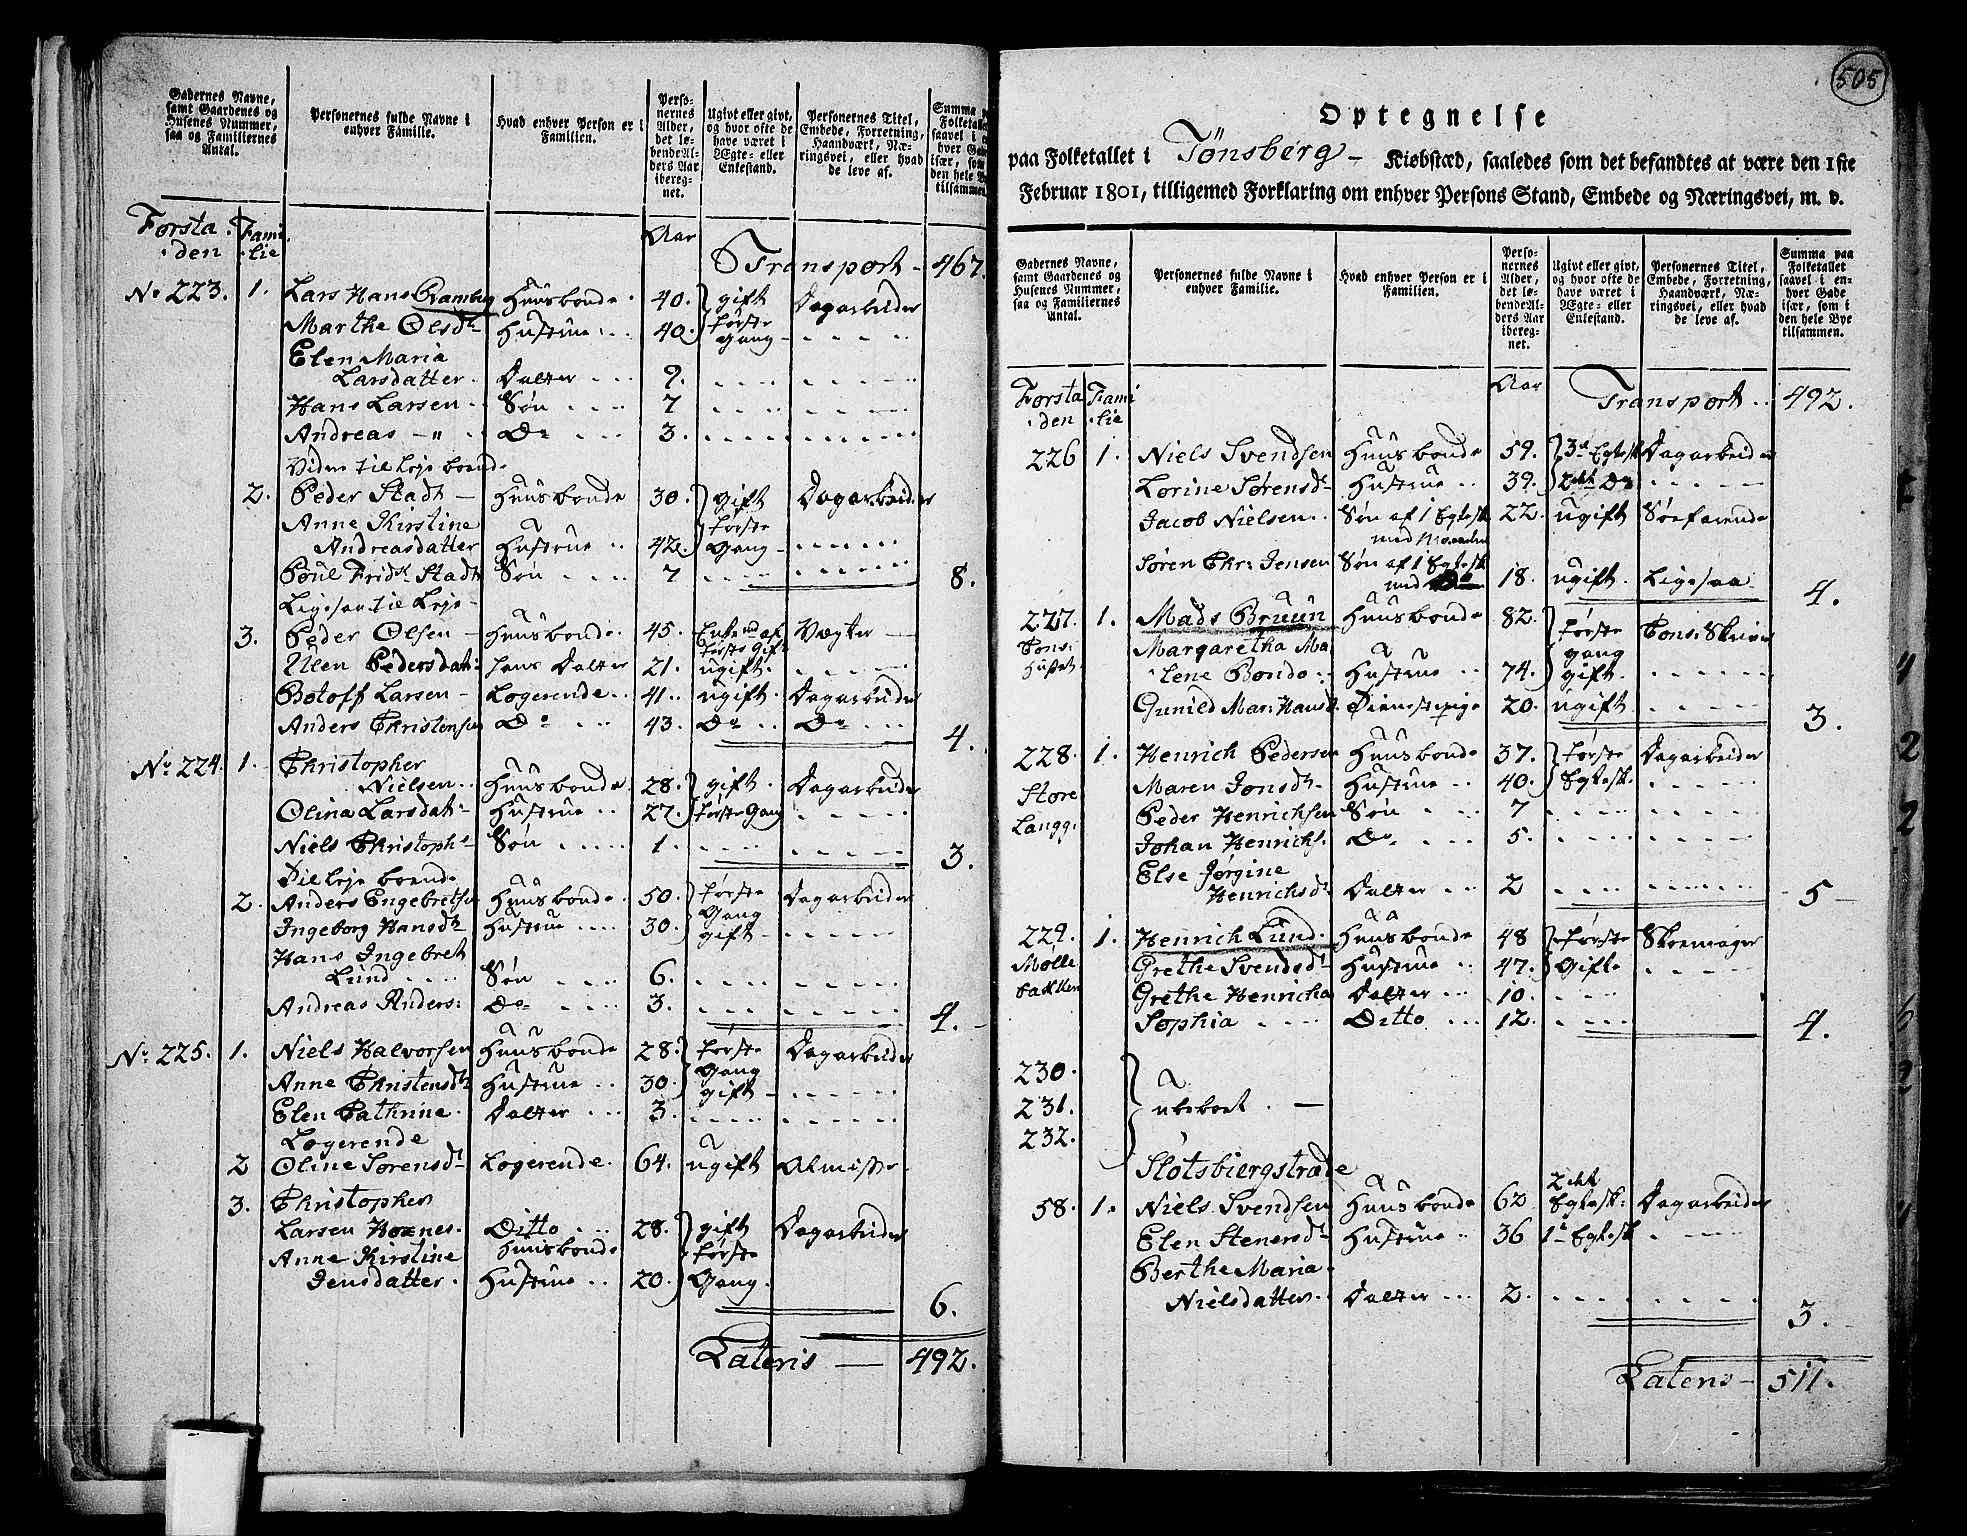 Gadernes Navne, samt Gaardenes og Husenes Nummer, saa og Familiernes Antal.
Personernes fulde Navne i enhver Familie.
Hvad enhver Person er i Familien.
Personernes Alder, det løbende Alders Aar iberegnet.
Ugivt eller givt, og hvor ofte de have været i Ægte- eller Enkestand.
Personernes Titel, Embede, Forretning, Haandværk, Næringsvei, eller hvad de leve af.
Forstaden Familie Aar Transport - 467.
No 223. 1. Lars Hans Ramberg Huusbonde. 40. gift Dagarbeider
Marthe Olsdr Hustrue 40. første Gang
Elen Maria
Larsdatter. Datter 9.
Hans Larsen Søn 7
Andreas - " Do 3.
Viden til Leje boende
2. Peder Stadt - Huusbonde 30. gift Dagarbeider
Anne Kirstine første
Andreasdatter Hustrue 42. Gang
Poul Fridk Stadt Søn 7 8.
Ligesaa til Leje
3. Peder Olsen - Huusbonde. 45. Enkemd af første Gift Vægter
Ellen Pedersdat: hans Datter 21. ugift.
Botoff Larsen - Logerende 41. ugift. Dagarbeider
Anders Christensen Do 43. Do Do 4.
No 224. 1. Christopher
Nielsen Huusbonde 28. gift Dagarbeider
Olina Larsdat: Hustrue 27. første Gang
Niels Christophs Søn 1. 3.
Til leje boende
2. Anders Engebretsen Huusbonde 50. første Dagarbeider
Ingeborg Hansdr Hustrue 30. Gang gift
Hans Ingebret
Lund Søn 6.
Andreas Anders: Do 3. 4.
No 225. 1. Niels Halvorsen Huusbonde 28. første Dagarbeider
Anne Christensdr Hustrue 30. Gang gift
Elen Cathrine Datter 3.
Logerende
2 Oline Sørensdr Logerende 64. ugift Almisse
3. Christopher
Larsen Hoxnes. Ditto 28. gift Dagarbeider
Huusbonde
Anne Kirstine første
Jensdatter. Hustrue 20. Gang.
6.
Lateris — 492.
505
Optegnelse
paa Folketallet i Tönsberg - Kiøbstæd, saaledes som det befandtes at være den 1ste
Februar 1801, tilligemed Forklaring om enhver Persons Stand, Embede og Næringsvei, m. v.
Gadernes Navne, samt Gaardenes og Husenes Nummer, saa og Familiernes Antal.
Personernes fulde Navne i enhver Familie.
Hvad enhver Person er i Familien.
Personernes Alder, det løbende Alders Aar iberegnet.
Ugivt eller givt, og hvor ofte de have været i Ægte- eller Enkestand.
Personernes Titel, Embede, Forretning, Haandværk, Næringsvei, eller hvad de leve af.
Summa paa Folketallet saavel i enhver Gade især, som i den hele Bye tilsammen.
Forstaden Familie Aar Transport 492.
226 1. Niels Svendsen Huusbonde 59. 3de Egtesk Dagarbeider
Lorine Sørensdr Hustrue 39. 2det Do
Jacob Nielsen Søn af 1 Egtesk 22. ugift Søefarende
Søren Chr: Jensen Søn af 1 Egtesk 18. ugift. Ligesaa
4.
227. 1. Mads Bruun Huusbonde 82. første Cons: Skriver
Cons: Huset Margaretha Ma: gang
lene Bondo Hustrue 74. gift.
Gunild Mar: Hansd. Tienestepige 20. ugift 3.
228. 1. Henrich Pedersen Huusbonde 37. første Dagarbeider
Maren Jonsdr Hustrue 40. Egtesk.
Store Langg: Peder Henrichsen Søn 7
Johan Henrichs. Do 5.
Else Jørgine
Henrichsdr Datter 2 5
229. 1. Henrich Lund Huusbonde 48 første Skoemager
Mølle Bakken Grethe Svendsdr Hustrue 47. Gifte
Grethe Henricha Datter 10.
Sophia Ditto 12. 4.
230.
231. ubeboet. —
232.
Slotsbiergstræde
58. 1. Niels Svendsen Huusbonde 62 2det Egtesk: Dagarbeider
Elen Stenersdr Hustrue 36 1te Egtesk
Berthe Maria
Nielsdatter Datter 2.
3.
Lateris - 511.